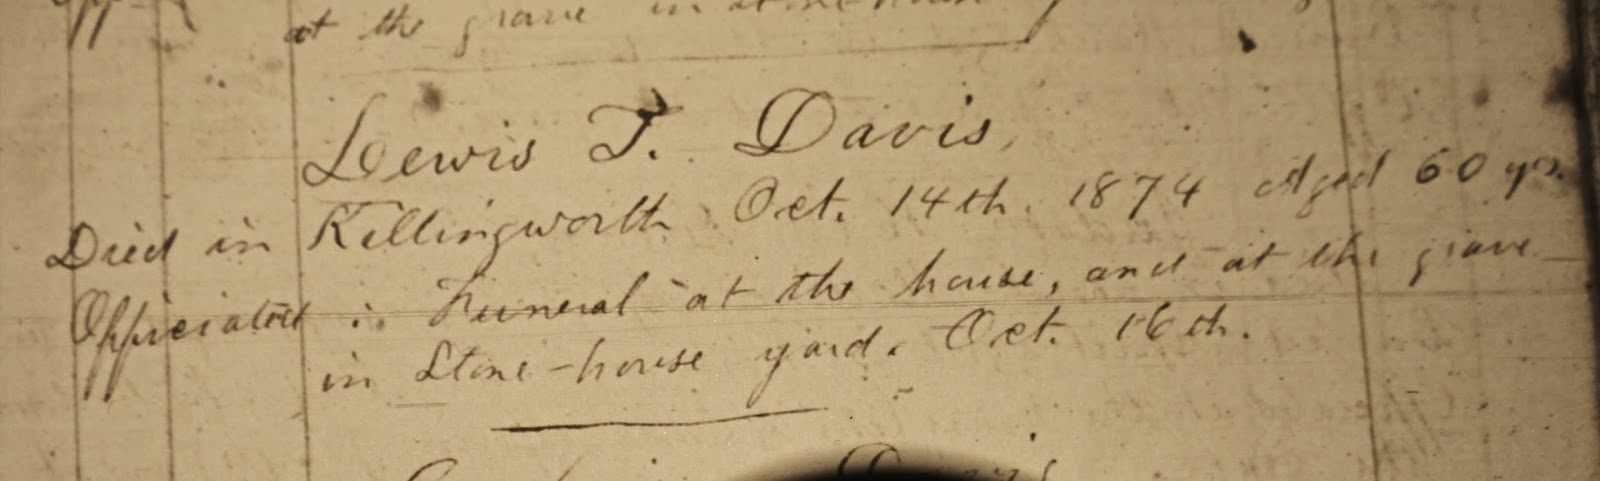 at the grave in Stone-house
Lewis T. Davis,
Died in Killingworth Oct. 14th. 1874 Aged 60 yrs.
Officiated : Funeral at the house, and at the grave
in Stone-house yard. Oct. 16th.
Davis